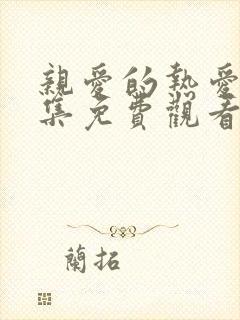 親愛的熱愛
集免費觀看
蘭拓